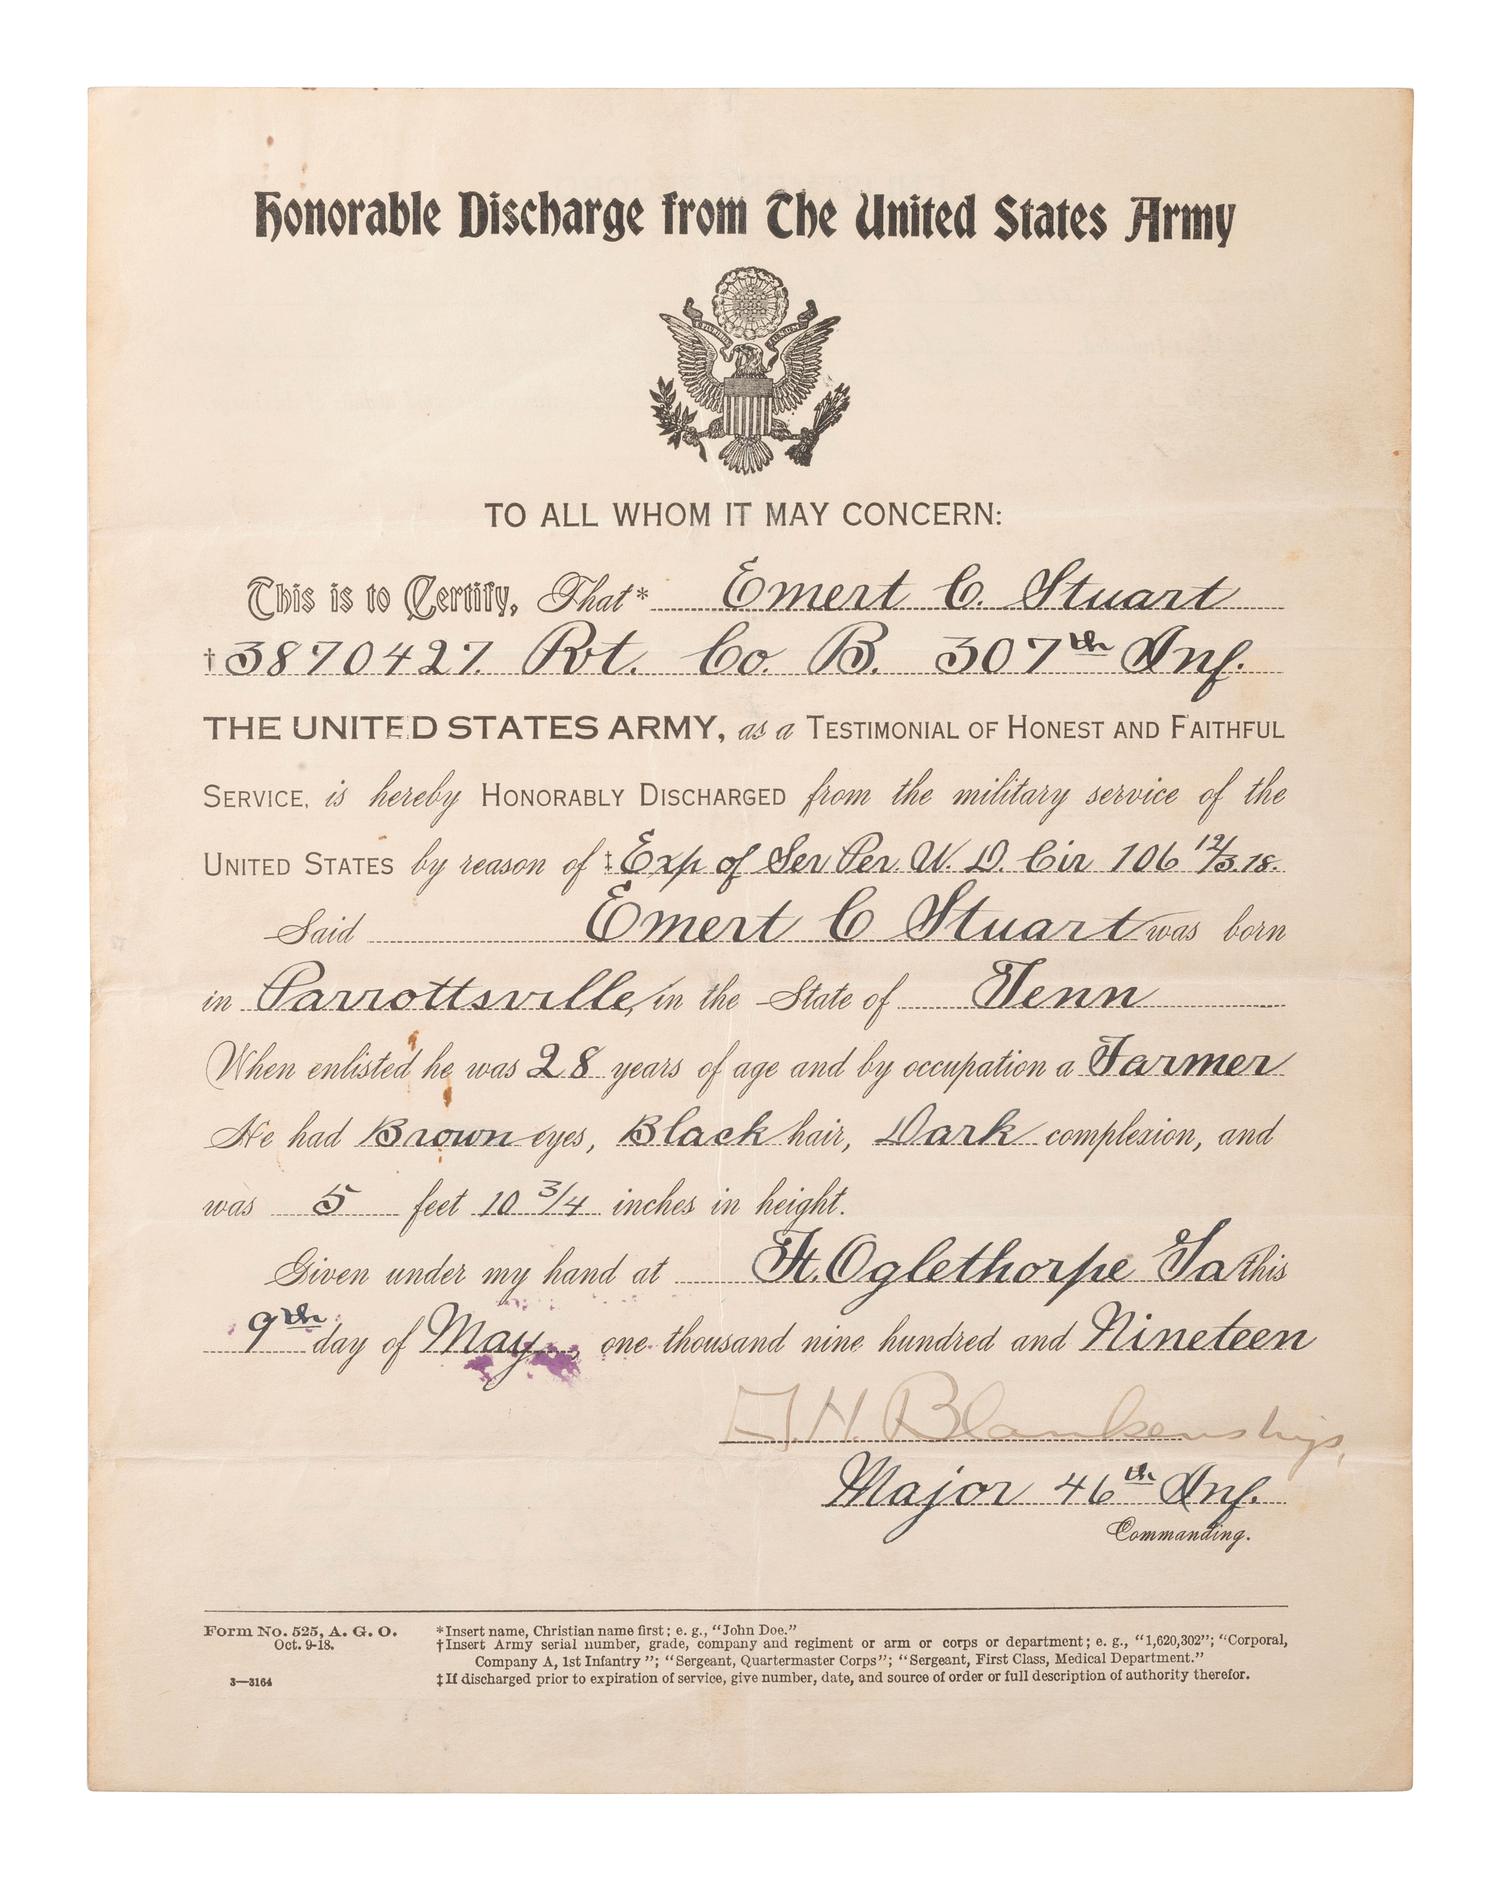 Honorable Discharge from The United States Army
E PLURIBUS UNUM
TO ALL WHOM IT MAY CONCERN:
This is to Certify, That* Emert C. Stuart
†3870427. Pvt. Co. B. 307th Inf.
THE UNITED STATES ARMY, as a TESTIMONIAL OF HONEST AND FAITHFUL
SERVICE, is hereby HONORABLY DISCHARGED from the military service of the
UNITED STATES by reason of ‡Exp of Ser Per. W. D. Cir 106 12/3.18.
Said Emert C Stuart was born
in Parrottsville, in the State of Tenn
When enlisted he was 28 years of age and by occupation a Farmer
He had Brown eyes, Black hair, Dark complexion, and
was 5 feet 10 3/4 inches in height.
Given under my hand at Ft. Oglethorpe Ga this
9th day of May, one thousand nine hundred and Nineteen
H. Blankenship,
Major 46th Inf.
Commanding.
Form No. 525, A. G. O.
Oct. 9-18.
3—3164
*Insert name, Christian name first; e. g., "John Doe."
†Insert Army serial number, grade, company and regiment or arm or corps or department; e. g., "1,620,302"; "Corporal,
Company A, 1st Infantry"; "Sergeant, Quartermaster Corps"; "Sergeant, First Class, Medical Department."
‡If discharged prior to expiration of service, give number, date, and source of order or full description of authority therefor.